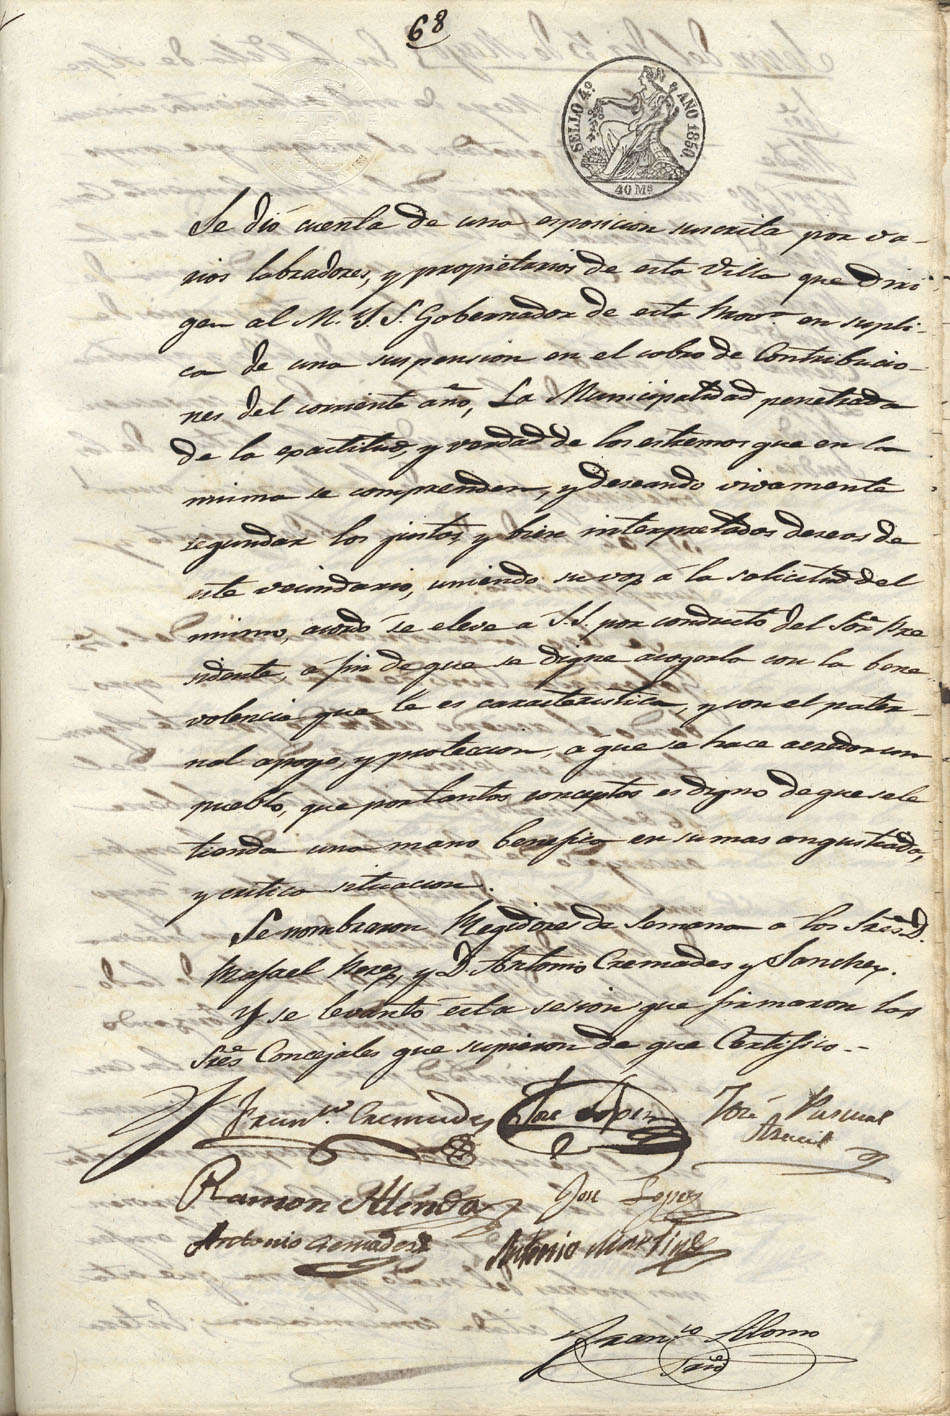 68
SELLO 4º AÑO 1850
40 Ms
Se dió cuenta de una esposicion suscrita por va-
rios labradores, y propietarios de esta Villa que diri
gen al M. Y. S. Gobernador de esta Provª en supli-
ca de una suspension en el cobro de Contribucio-
nes del corriente año, La Municipalidad penetrada
de la exactitud, y verdad de los estremos que en la
misma se comprenden, y deseando vivamente
segundar los justos, y bien interpretados deseos de
este vecindario, uniendo su voz á la solicitud del
mismo, acordó se eleve á S.S. por conducto del Sor. Pre
sidente, a fin de que se digne acogerla con la bene
volencia que le es caracteristica, y con el pater-
nal apoyo, y proteccion, á que se hace acreedor un
pueblo, que por tantos conceptos es digno de que se le
tienda una mano benefica en su mas angustiada,
y critica situacion.
Se nombraron Regidores de Semana a los Sres D.
Rafael Perez, y D. Antonio Cremades y Sanchez.
Y se levantó esta sesion que firmaron los
Sres Concejales que supieron de que Certifico.-
Franco. Cremades José Lopez José Pascual
Aracil
Ramon Alenda José Lopez
Antonio Cremades Antonio Martinez
Franco Alonso
Srio